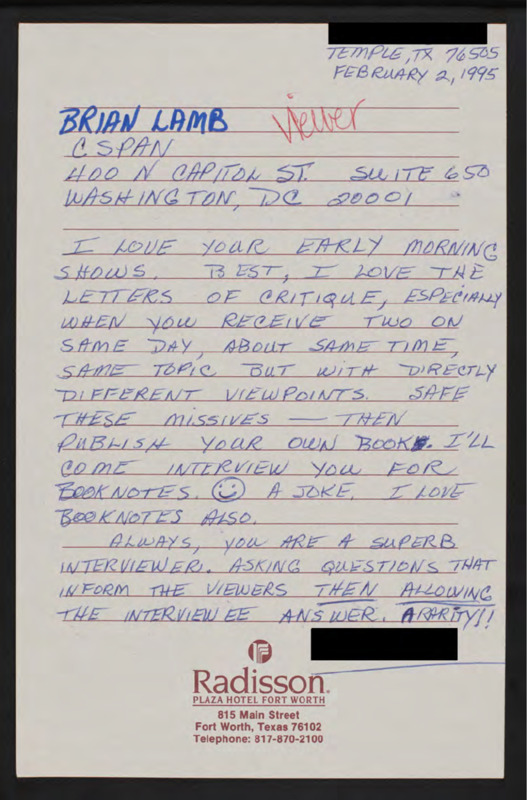 TEMPLE, TX 76505
FEBRUARY 2, 1995
BRIAN LAMB viewer
C SPAN
400 N CAPITOL ST. SUITE 650
WASHINGTON, DC 20001
I LOVE YOUR EARLY MORNING
SHOWS. BEST, I LOVE THE
LETTERS OF CRITIQUE, ESPECIALLY
WHEN YOU RECEIVE TWO ON
SAME DAY, ABOUT SAME TIME,
SAME TOPIC BUT WITH DIRECTLY
DIFFERENT VIEWPOINTS. SAFE
THESE MISSIVES — THEN
PUBLISH YOUR OWN BOOK. I'LL
COME INTERVIEW YOU FOR
BOOKNOTES. ☺ A JOKE. I LOVE
BOOKNOTES ALSO.
ALWAYS, YOU ARE A SUPERB
INTERVIEWER. ASKING QUESTIONS THAT
INFORM THE VIEWERS THEN ALLOWING
THE INTERVIEWEE ANSWER. A RARITY!!
Radisson
PLAZA HOTEL FORT WORTH
815 Main Street
Fort Worth, Texas 76102
Telephone: 817-870-2100